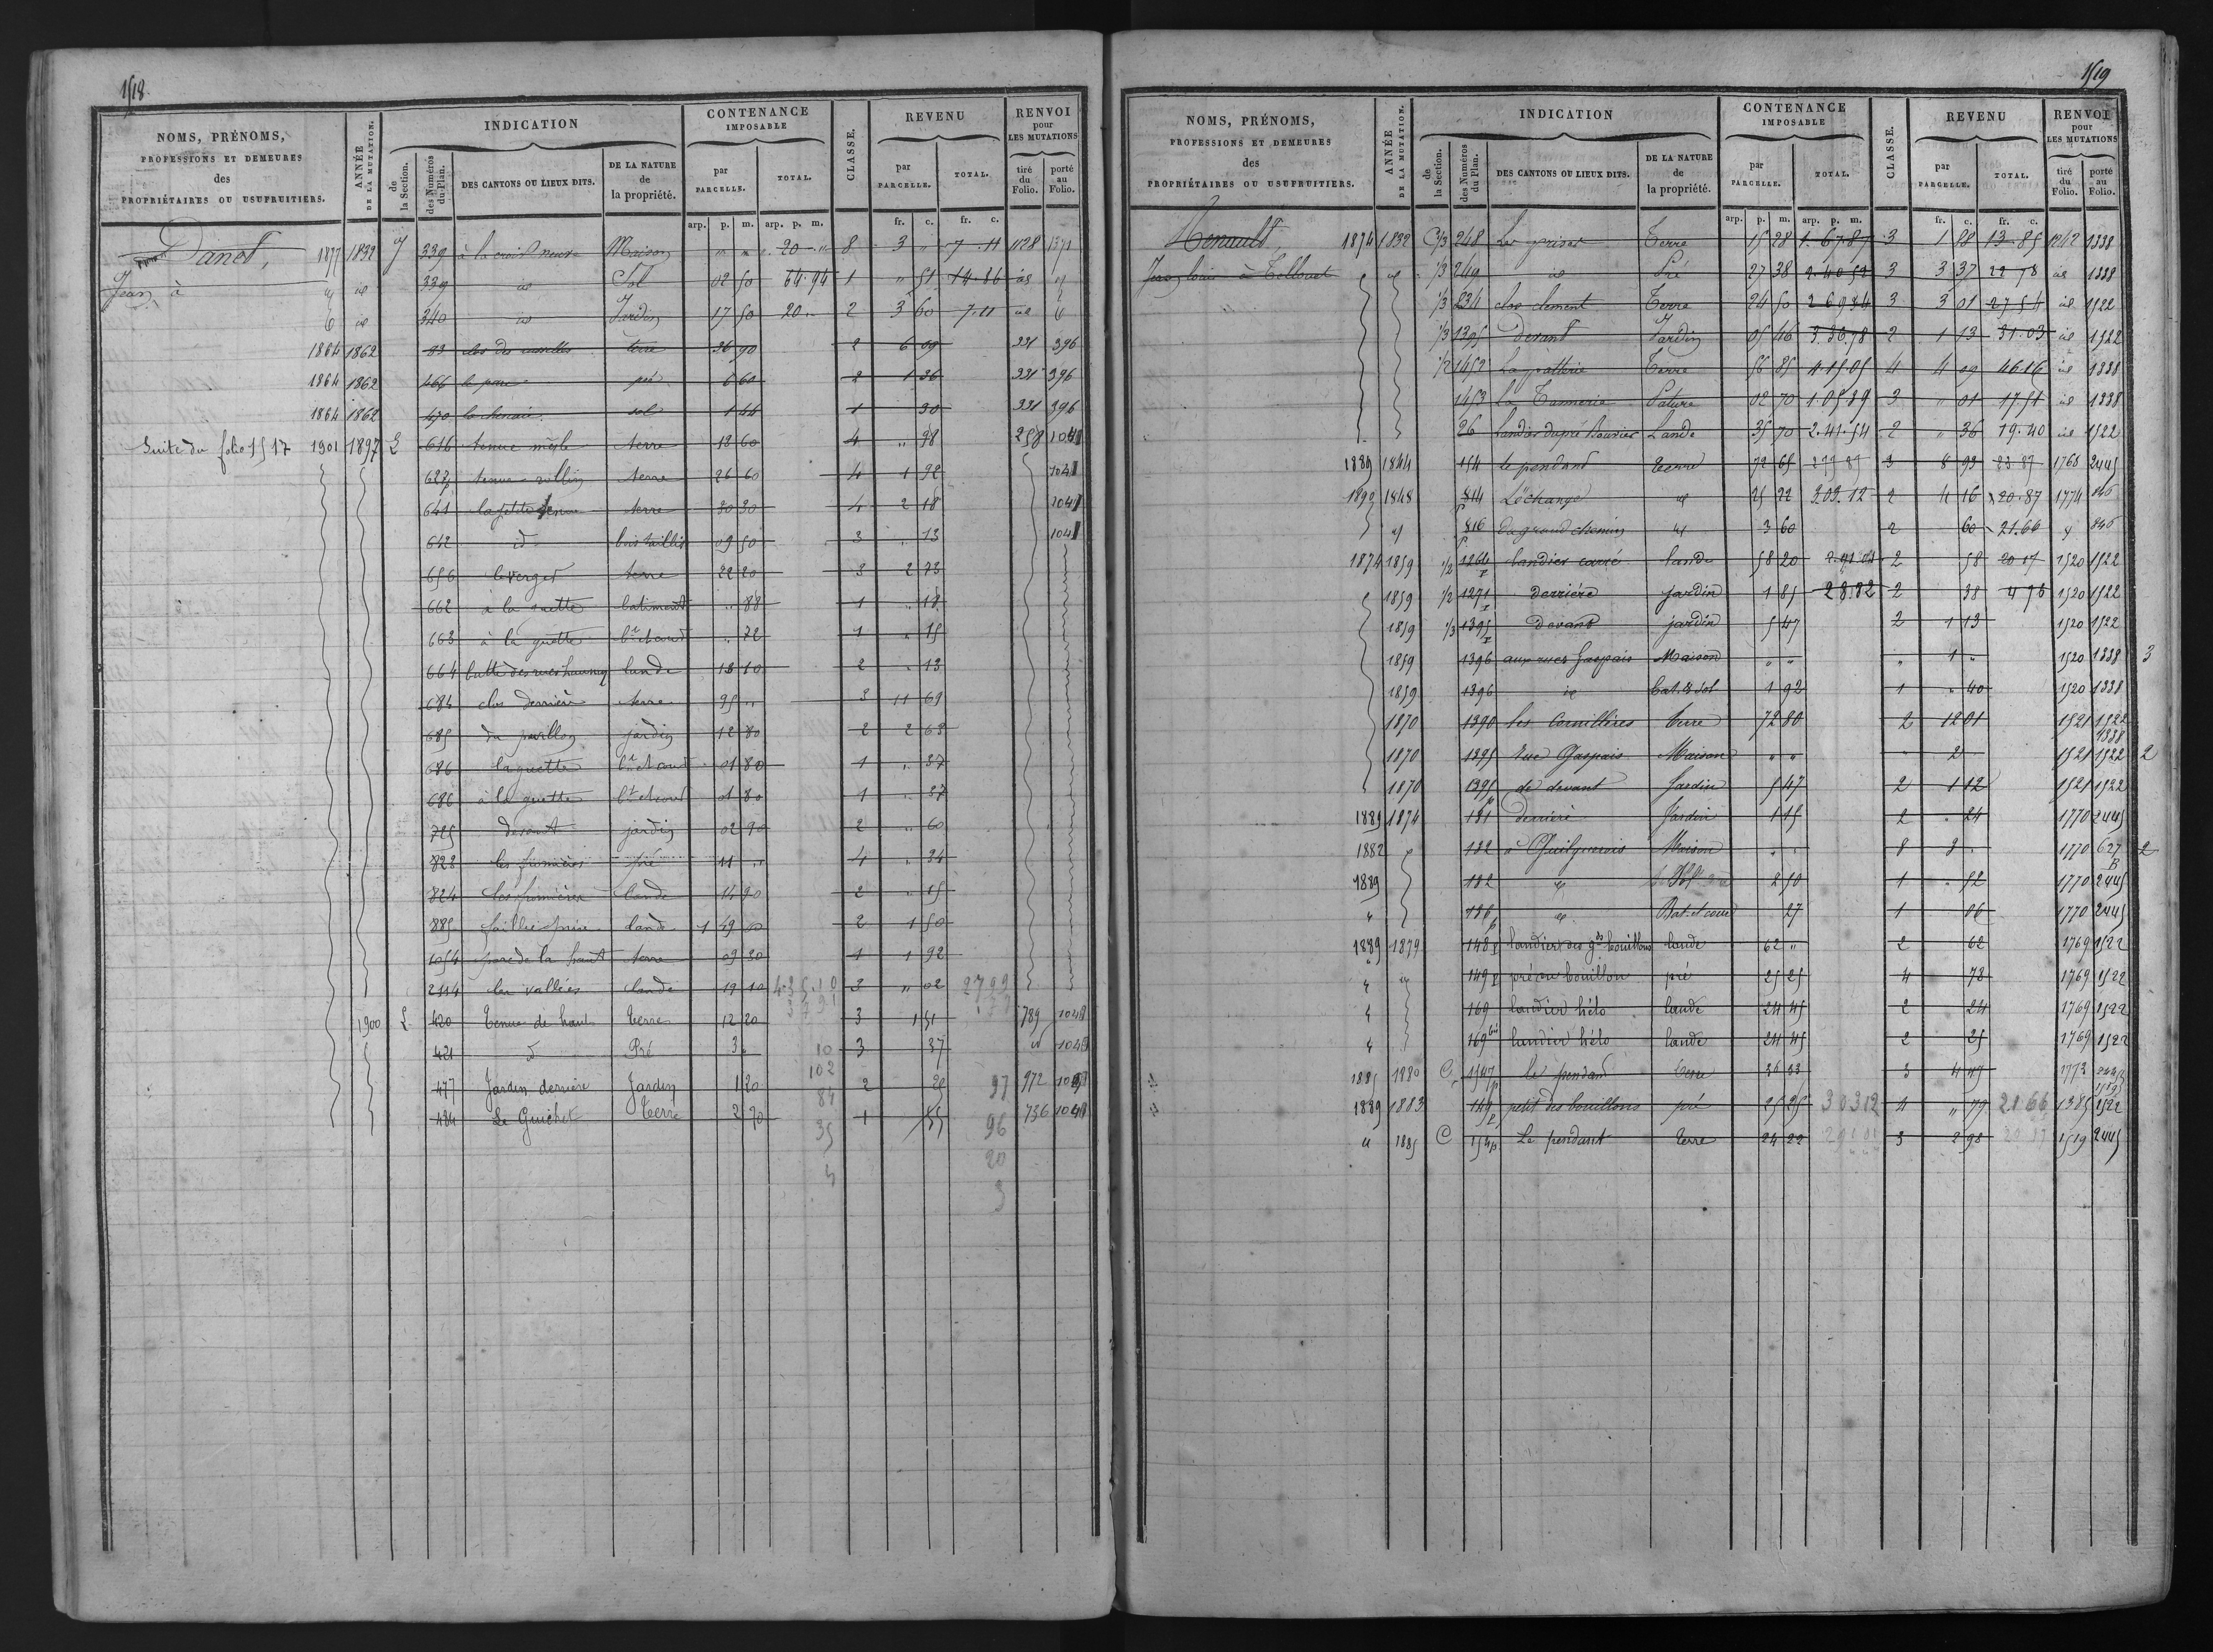 1518
NOMS, PRÉNOMS, PROFESSIONS ET DEMEURES des PROPRIÉTAIRES OU USUFRUITIERS.
ANNÉE DE LA MUTATION.
INDICATION
de la Section.
des Numéros du Plan.
DES CANTONS OU LIEUX DITS.
DE LA NATURE de la propriété.
CONTENANCE IMPOSABLE
par PARCELLE.
TOTAL.
CLASSE.
REVENU
par PARCELLE.
TOTAL.
RENVOI pour LES MUTATIONS
tiré du Folio.
porté au Folio.
arp. p. m. arp. p. m. fr. c. fr. c.
Danet, 1877 1832 J 339 à la croix neuve Maison " " 20 " 8 3 " 7 11 1128 1371
Jean, à id 339 id Sol 02 50 64.94 1 " 51 14.86 id
id 340 id Jardin 17 50 20 " 2 3 60 7.11 id
1864 1862 93 clos des terre 36 90 2 6 09 331 396
1864 1862 466 le parc pré 6 60 2 1 36 331 396
1864 1862 470 sol 1 44 1 30 331 396
Suite du folio 1517 1901 1897 L 616 tenue terre 18 60 4 " 98 258 1041
627 tenue rollin terre 26 60 4 1 92 1041
641 la petite tenue terre 30 30 4 2 18 1041
642 id bois taillis 09 50 3 " 13 1041
656 le verger terre 22 20 3 2 73
662 à la guette batiment " 88 1 " 18
663 à la guette " 72 1 " 15
664 butte des lande 18 10 2 " 13
684 clos derrière terre 95 " 3 11 69
685 du pavillon jardin 12 80 2 2 63
686 la guette 01 80 1 " 37
686 à la guette 01 80 1 " 37
725 devant jardin 02 90 2 " 60
828 les fumières pré 11 " 4 " 34
824 les fumières lande 14 90 2 " 15
885 lande 1 49 00 2 1 50
1054 parc de la haut terre 09 30 1 1 92
2114 les vallées lande 19 10 3 " 02 2799
1900 L 420 Tenue de haut terre 12 20 3 1 51 789 1041
421 d Pré 3 " 10 3 37 id 1041
477 Jardin derrière Jardin 1 20 102 2 25 97 972 1041
434 Le Guichet terre 2 70 84 1 55 96 736 1041
35 20
3
1519
NOMS, PRÉNOMS, PROFESSIONS ET DEMEURES des PROPRIÉTAIRES OU USUFRUITIERS.
ANNÉE DE LA MUTATION.
INDICATION
de la Section.
des Numéros du Plan.
DES CANTONS OU LIEUX DITS.
DE LA NATURE de la propriété.
CONTENANCE IMPOSABLE
par PARCELLE.
TOTAL.
CLASSE.
REVENU
par PARCELLE.
TOTAL.
RENVOI pour LES MUTATIONS
tiré du Folio.
porté au Folio.
arp. p. m. arp. p. m. fr. c. fr. c.
Henault, 1874 1832 C 1/3 248 Les prises Terre 15 28 1.67.87 3 1 28 13.85 1242 1338
Jean louis à id 1/3 249 id Pré 27 38 2.40.52 3 3 37 22 78 id 1338
1/3 234 clos clement Terre 24 50 2 69 84 3 3 01 27 54 id 1522
1/3 1395 Devant Jardin 05 46 3.36.98 2 1 13 31.03 id 1522
1/2 1452 La patterie Terre 56 85 4.15.05 4 4 09 46 16 id 1338
1453 la Tannerie Pature 02 70 1.05.89 3 " 01 17 51 id 1338
26 Landier du pré Lande 35 70 2.41.54 2 " 36 19.40 id 1522
1889 1844 154 Le pendant terre 72 65 3 8 93 23 87 1768 2445
1892 1848 814 L'échange id 25 22 303.12 2 4 16 20.87 1774 846
816 Le grand chemin id 3 60 2 60 21.66 846
1874 1859 1/2 1264 landier carré lande 58 20 2 58 20 17 1520 1522
1859 1/2 1271 derrière jardin 1 85 28.82 2 38 4 96 1520 1522
1859 1/3 1395 devant jardin 5 47 2 1 13 1520 1522
1859 1396 aux rues Gaspais Maison " " " 1 " 1520 1338 3
1859 1396 id bat. & sol 1 92 1 " 40 1520 1338
1870 1390 les Cornillères terre 72 80 2 12 01 1521 1522
1338
1870 1395 Rue Gaspais Maison " " " 2 1521 1522 2
1870 1395 de devant Jardin 5 47 2 1 12 1521 1522
1889 1874 181 Derrière Jardin 1 15 2 " 24 1770 2445
1882 182 à Maison " " 8 3 " 1770 627 2
B
1889 182 id Sol 2 50 1 " 52 1770 2445
186 id Bat. et cour 27 1 06 1770 2445
1889 1879 148 landier des gds bouillons lande 62 " 2 62 1769 1522
149 pré au bouillon pré 25 25 4 78 1769 1522
169 landier hélo lande 24 45 2 24 1769 1522
169 bis landier hélo lande 24 45 2 25 1769 1522
1885 1880 C 1547 le pendant terre 36 33 3 4 47 1773
1889 1883 149 petit des bouillons pré 25 25 30312 4 " 79 21 66 1385 1522
1885 C 154 Le pendant terre 24 22 3 2 98 1519 2445